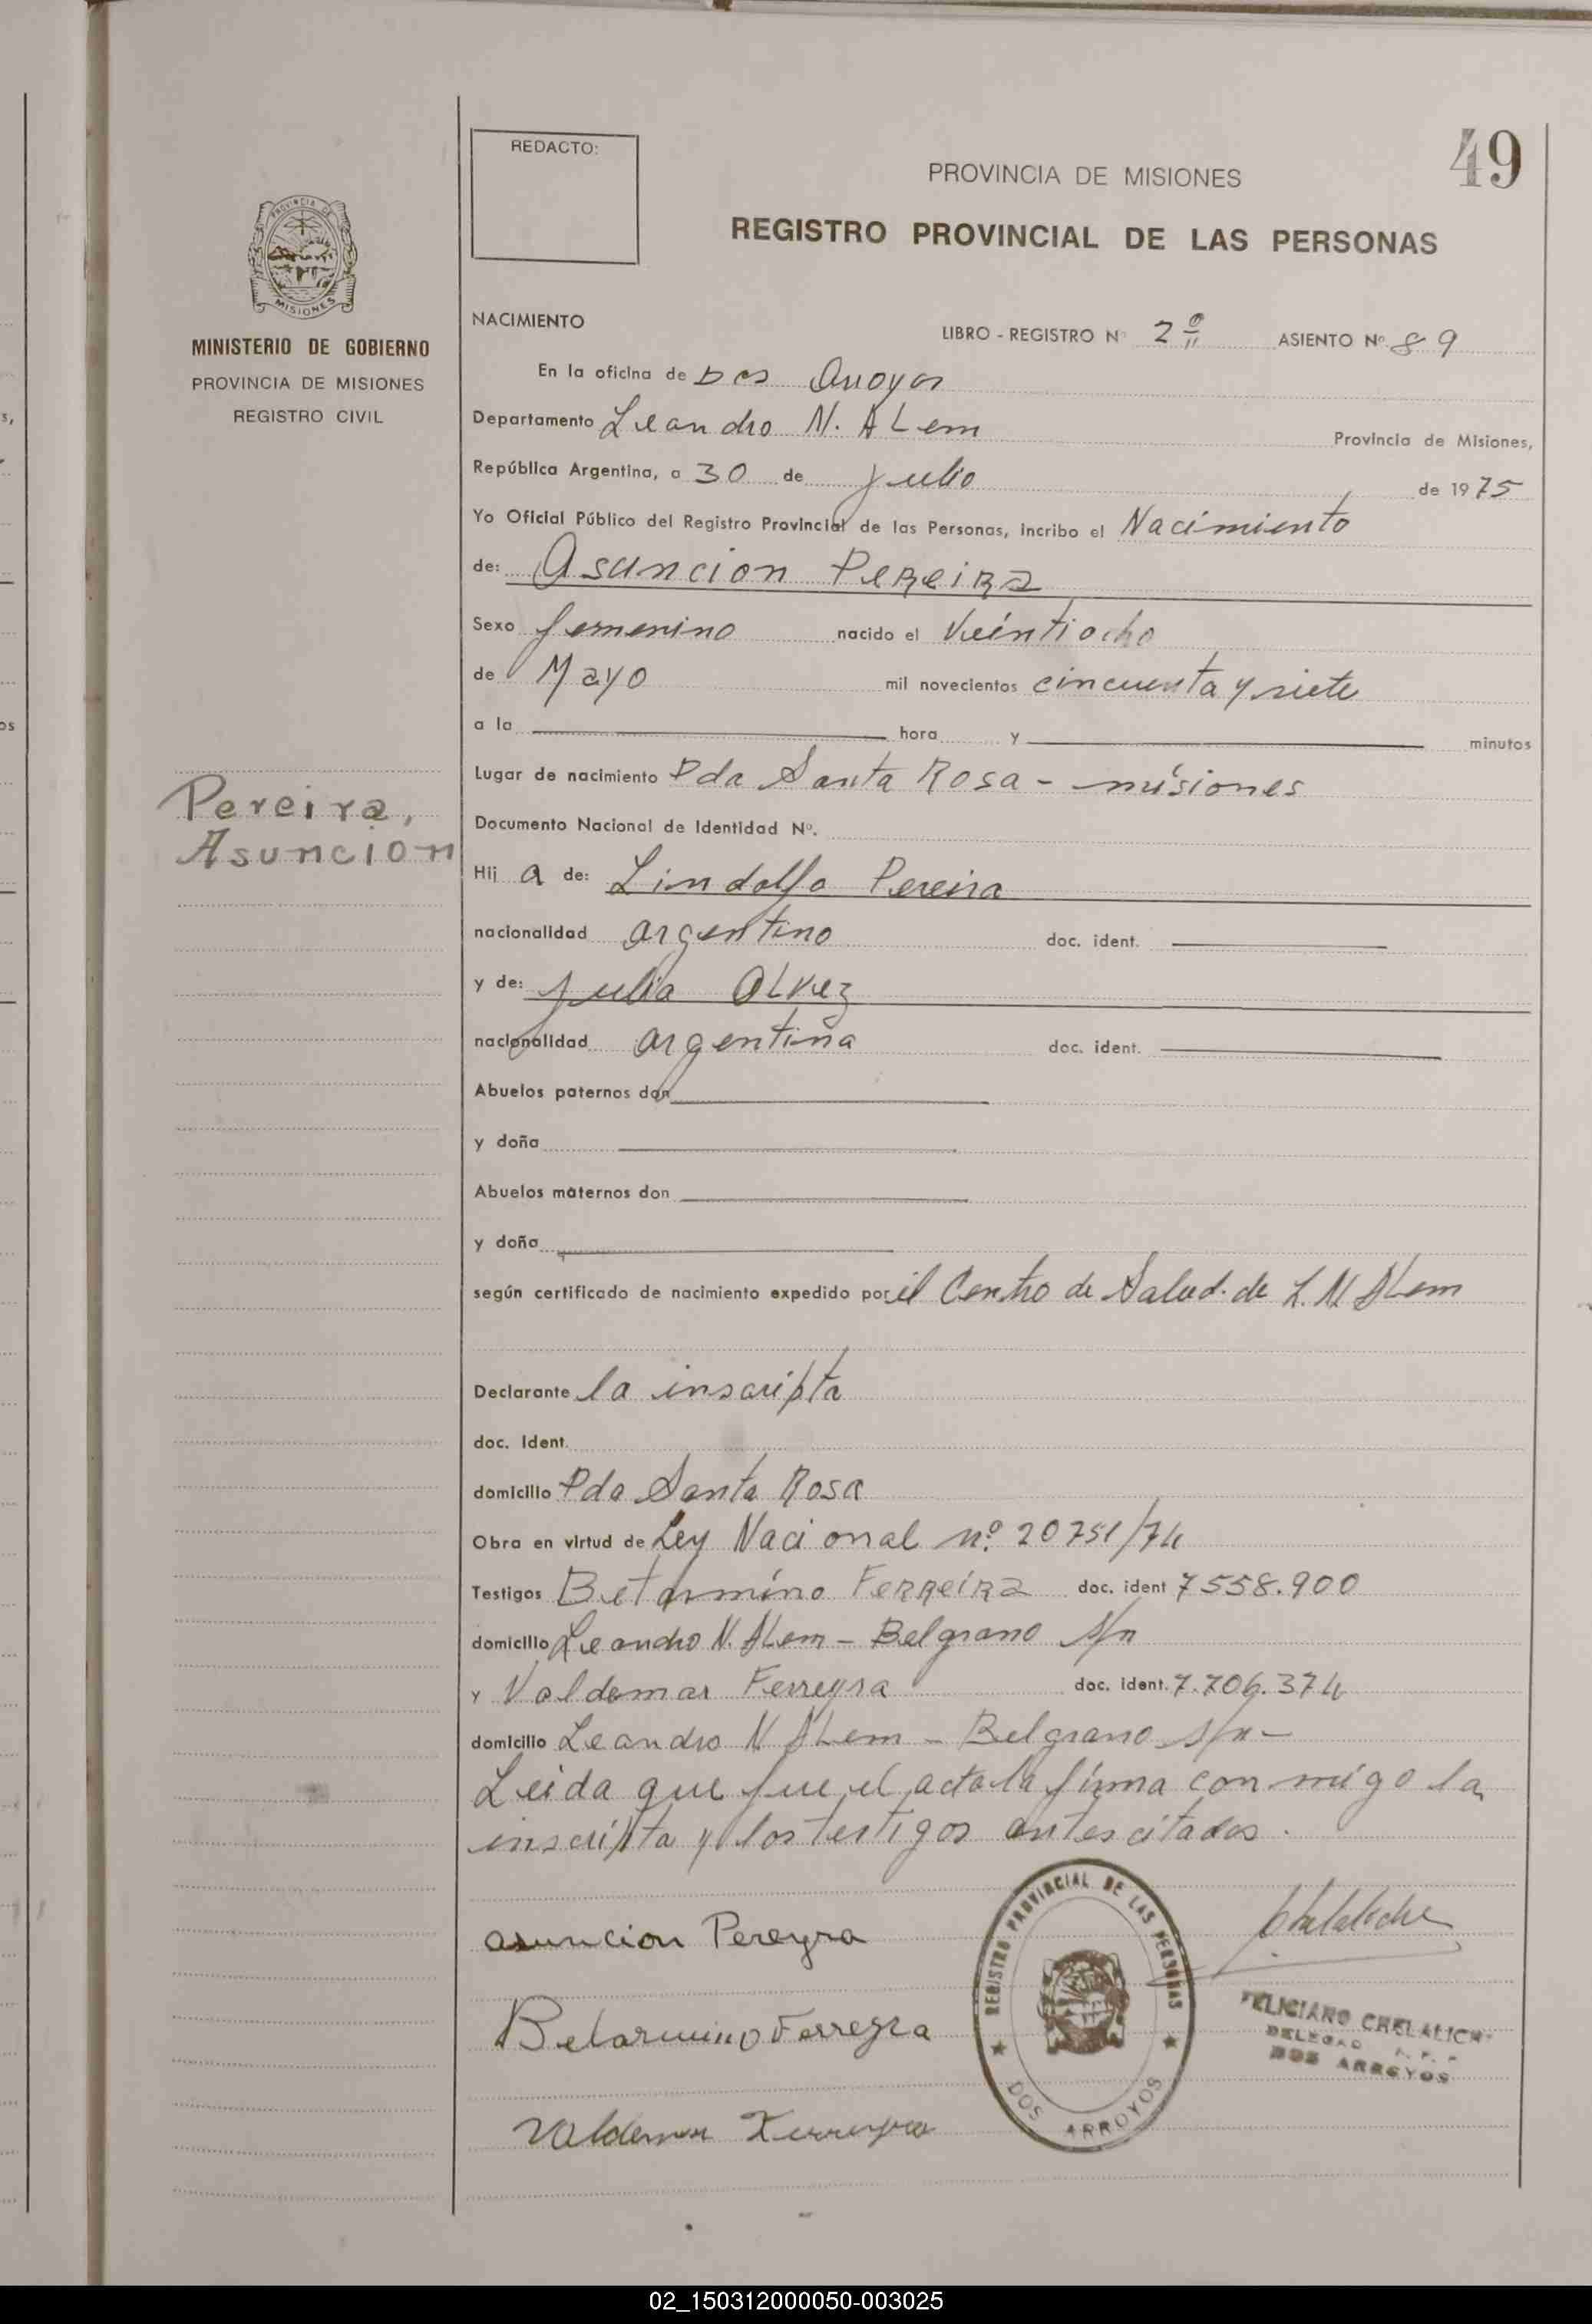 49
REDACTO:
PROVINCIA DE MISIONES
REGISTRO PROVINCIAL DE LAS PERSONAS
PROVINCIA DE
MISIONES
MINISTERIO DE GOBIERNO
PROVINCIA DE MISIONES
REGISTRO CIVIL
NACIMIENTO
LIBRO - REGISTRO Nº 2º ASIENTO Nº 89
En la oficina de Dos Arroyos
Departamento Leandro N. ALem Provincia de Misiones,
República Argentina, a 30 de Julio de 1975
Yo Oficial Público del Registro Provincial de las Personas, incribo el Nacimiento
de: Asuncion Pereira
Sexo femenino nacido el Veintiocho
de Mayo mil novecientos cincuenta y siete
a la hora y minutos
Lugar de nacimiento Pda Santa Rosa - misiones
Pereira,
Asuncion
Documento Nacional de Identidad Nº.
Hij a de: Lindolfo Pereira
nacionalidad argentino doc. ident.
y de: Julia ALvez
nacionalidad argentina doc. ident.
Abuelos paternos don
y doña
Abuelos maternos don
y doña
según certificado de nacimiento expedido por el Centro de Salud. de L. N ALem
Declarante la inscripta
doc. Ident.
domicilio Pda Santa Rosa
Obra en virtud de Ley Nacional nº 20751/74
Testigos Betarmino Ferreira doc. ident 7558.900
domicilio Leandro N. ALem - Belgrano s/n
y Valdemar Ferreyra doc. ident. 7.706.374
domicilio Leandro N ALem - Belgrano s/n -
Leida que fue el acta la firma con migo la
inscripta y los testigos antes citados.
asuncion Pereyra
Belarmino Ferreyra
Valdemar Ferreyra
REGISTRO PROVINCIAL DE LAS PERSONAS
DOS ARROYOS
FELICIANO CHELALICH
DOS ARROYOS
02_150312000050-003025